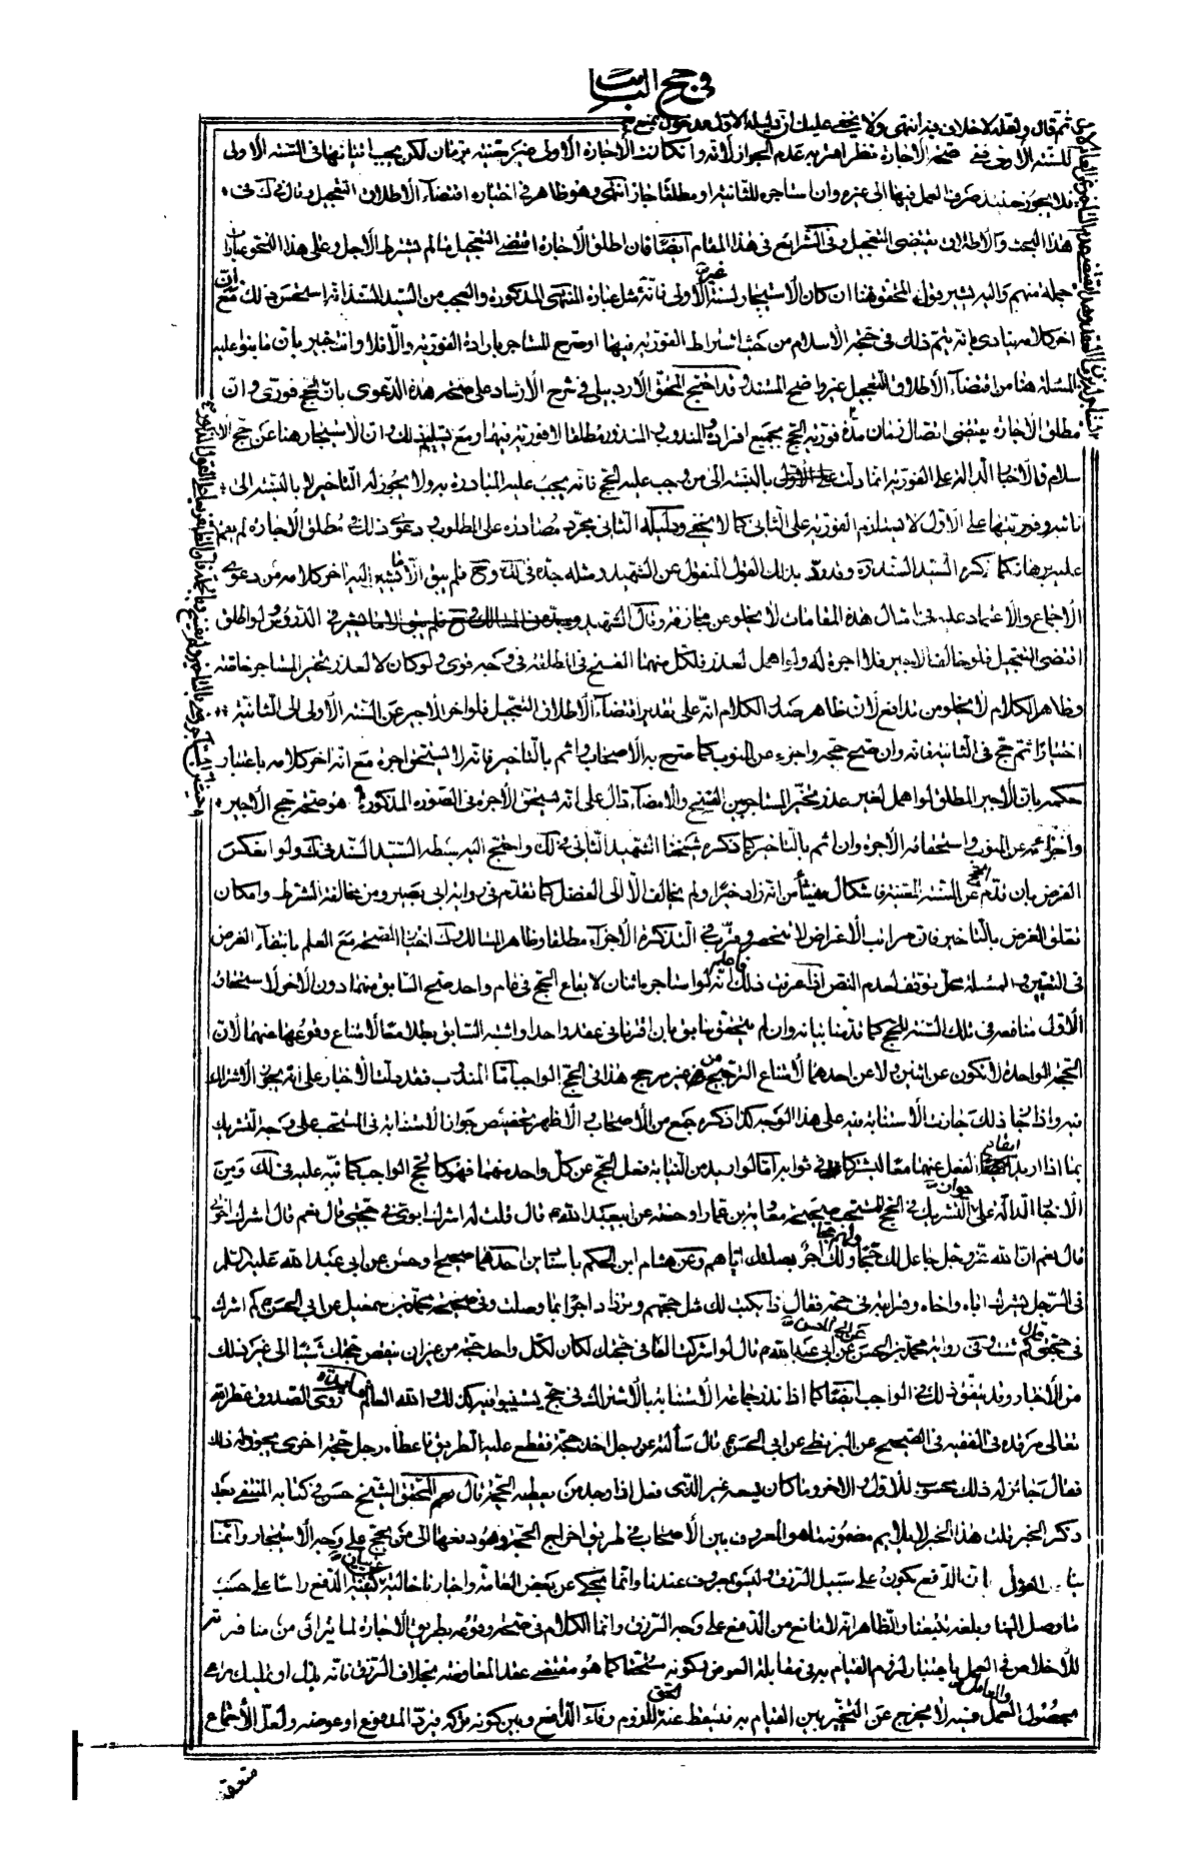 في حج النيابت
ثم قال ولعله لاخلاف فيه انتهى ولا يخفى عليك ان دليله الاول
للسنة الاولى ففي صحة الاجارة نظر اقربه عدم الجواز لانه وان كانت الاجارة الاولى غير معينة بزمان لكن يجب اتيانها في السنة الاولى
فلا يجوز حينئذ صرف العمل فيها الى غيره وان استاجره للثانية او مطلقا جاز انتهى وهو ظاهر في اختياره اقتضاء الاطلاق التعجيل وقال في ك في
هذا البحث والاطلاق يقتضى التعجيل وفي الشرايع في هذا المقام ايضا فان اطلق الاجارة اقتضى التعجيل ما لم يشترط الاجل وعلى هذا النحو عبارات
جملة منهم واليه يشير قول المحقق هنا ان كان الاستيجار لسنة غير الاولى فانه مثل عبارة المنتهى المذكورة والعجب من السيد السند انه استحسن ذلك مع ان
اخر كلامه ينادي بانه يتم ذلك في حجة الاسلام من حيث اشتراط الفورية فيها او صرح المستاجر بارادة الفورية والا فلا وانت خبير بان ما بنوا عليه
المسئلة هنا من اقتضاء الاطلاق التعجيل غير واضح المستند وقد احتج المحقق الاردبيلي في شرح الارشاد على صحة هذه الدعوى بان الحج فوري وان
مطلق الاجارة يقتضى اتصال زمان مدة فورية الحج بجميع افراده المندوب والمنذور مطلقا لا فورية فيها ومع تسليم ذلك وان الاستيجار هنا عن حج الا
سلام فالاخبار الدالة على الفورية انما دلت بالنسبة الى من وجب عليه الحج فانه يجب عليه المبادرة به ولا يجوز له التاخير لا بالنسبة الى
نائبه وفوريتها على الاول لا يستلزم الفورية على الثاني كما لا يخفى ودليله الثاني مجرد مصادرة على المطلوب ودعوى ذلك في مطلق الاجارة لم يقم
عليه برهان كما ذكره السيد السند ره وقد رد بذلك القول المنقول عن الشهيد ومثله جده في لك وح فلم يبق الا ما يشير اليه اخر كلامه من دعوى
الاجماع والاعتماد عليه في امثال هذه المقامات لا يخلو عن مجازفة وقال الشهيد في الدروس لو اطلق
اقتضى التعجيل فلو خالف الاجير فلا اجرة له ولو اهمل لعذر فلكل منهما الفسخ في المطلقة في وجه قوى ولو كان لا لعذر تخير المستاجر خاصة
وظاهر الكلام لا يخلو من تدافع لان ظاهر صدر الكلام انه على تقدير اقتضاء الاطلاق التعجيل فلو اخر الاجير عن السنة الاولى الى الثانية
اختيارا ثم حج في الثانية فانه وان صح حجه واجزء عن المنوب كما صرح به الاصحاب واثم بالتاخير فانه لا يستحق اجرة مع انه اخر كلامه باعتبار
حكمه بان الاجير المطلق لو اهمل لغير عذر تخير المستاجر بين الفسخ والامضاء دال على انه يستحق الاجرة في الصورة المذكورة هو صحة حج الاجير
واجزائه عن المنوب واستحقاقه الاجرة وان اثم بالتاخير كما ذكره شيخنا الشهيد الثاني في لك واحتج اليه سبطه السيد السند في ك ولو انعكس
الفرض بان تقدم الحج عن السنة المعينة فاشكال ينشأ من انه زاد خيرا ولم يخالف الا الى الفضل كما تقدم في رواية ابي بصير ومن مخالفة الشرط وامكان
تعلق الغرض بالتاخير فان مراتب الاغراض لا تنحصر وقرب في التذكرة الاجزاء مطلقا وظاهر المسالك وك اختيار الصحة مع العلم بانتفاء الغرض
في التعيين والمسئلة محل توقف لعدم النص اذا عرفت ذلك فاعلم انه لو استاجره اثنان لايقاع الحج في عام واحد صح السابق منهما دون الاخر لاستحقاق
الاول منافعه في تلك السنة للحج كما قدمنا بيانه وان لم يتحقق سابق بان اقترنا في عقد واحد او اشتبه السابق بطلا معا لامتناع وقوعها عنهما لان
الحجة الواحدة لا تكون عن اثنين ولا عن احدهما لامتناع الترجيح من غير مرجح هذا في الحج الواجب اما المندوب فقد دلت الاخبار على انه يجوز الاشتراك
فيه واذا جاز ذلك جازت الاستنابة فيه على هذا الوجه كذا ذكره جمع من الاصحاب والاظهر تخصيص جواز الاستنابة في المستحب على وجه التشريك
بما اذا اريد ايقاع الفعل عنهما معا ليشتركا في ثوابه اما لو اريد من النيابة فعل الحج عن كل واحد منهما فهو كالحج الواجب كما نبه عليه في لك ومن
الاخبار الدالة على جواز التشريك في الحج المستحب صحيحة معوية بن عمار او حسنة عن ابيعبد الله م قال قلت له اشرك ابوي في حجتي قال نعم قال اشرك اخوتي
قال نعم ان الله عز وجل جاعل لك حجا ولهم حجا ولك اجر بصلتك اياهم وعن هشام ابن الحكم باسنادين احدهما صحيح او حسن عن ابي عبد الله عليه السلم
في الرجل يشرك اباه واخاه وقرابته في حجه فقال اذا يكتب لك مثل حجهم وتزداد اجرا بما وصلت وفي صحيحة محمد بن اسمعيل عن ابي الحسن ع كم اشرك
في حجتي قال كم شئت وفي رواية محمد بن الحسن عن ابي الحسن عن ابي عبد الله م قال لو اشركت الفا في حجتك لكان لكل واحد حجة من غير ان ينقص حجك شيئا الى غير ذلك
من الاخبار وقد يتفق ذلك في الواجب ايضا كما اذا نذر جماعة الاستنابة بالاشتراك في حج يستنيبوا فيه كذلك والله العالم فائدة روى الصدوق عطر الله
تعالى مرقده في الفقيه في الصحيح عن البزنطي عن ابي الحسن ع قال سألته عن رجل اخذ حجة فقطع عليه الطريق فاعطاه رجل حجة اخرى يجوز له ذلك
فقال جائز له ذلك محسوب للاول والاخر وما كان يسعه غير الذي فعل اذا وجد من يعطيه الحجة قال المحقق الشيخ حسن في كتابه المنتقى بعد
ذكر الخبر قلت هذا الخبر لا يلايم مضمونه ما هو المعروف بين الاصحاب في طريق اخراج الحجة وهو دفعها الى من يحج على وجه الاستيجار وانما
يناسب القول ان الدفع يكون على سبيل الرزق وليس بمعروف عندنا وانما يحكى عن بعض العامة واخبارنا خالية عن بيان كيفية الدفع راسا على حسب
ما وصل الينا وبلغه تتبعنا والظاهر انه لا مانع من الدفع على وجه الرزق وانما الكلام في صحته ووقوعه بطريق الاجارة لما يترائى من منافرته
للاخلاص في العمل باعتبار لزوم القيام به في مقابلة العوض وكونه مستحقا كما هو مقتضى عقد المعاوضة بخلاف الرزق فانه بذل او تمليك يراعى
حصول العمل والعامل فيه لا يخرج عن التخيير بين القيام به فيسقط عنه لحق للزوم وفاء الدافع وبين كونه يتركه فيرد المدفوع او عوضه ولعل الاجماع
متعقد